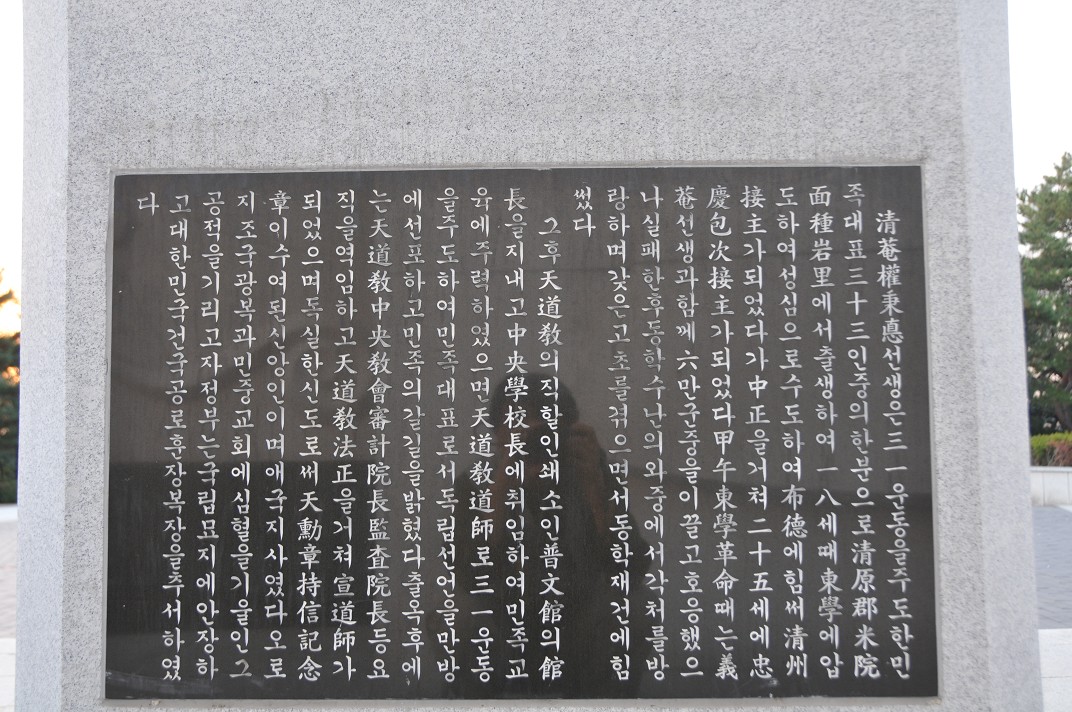 淸菴權秉悳선생은三一운동을주도한민
족대표三十三인중의한분으로淸原郡米院
面種岩里에서출생하여一八세때東學에입
도하여성심으로수도하여布德에힘써淸州
接主가되었다가中正을거쳐二十五세에忠
慶包次接主가되었다甲午東學革命때는義
菴선생과함께六만군중을이끌고호응했으
나실패한후동학수난의와중에서각처를방
랑하며갖은고초를겪으면서동학재건에힘
썼다
그후天道敎의직할인쇄소인普文館의館
長을지내고中央學校長에취임하여민족교
육에주력하였으면天道敎道師로三一운동
을주도하여민족대표로서독립선언을만방
에선포하고민족의갈길을밝혔다출옥후에
는天道敎中央敎會審計院長監査院長등요
직을역임하고天道敎法正을거쳐宣道師가
되었으며독실한신도로써天勳章持信記念
章이수여된신앙인이며애국지사였다오로
지조국광복과민중교회에심혈을기울인그
공적을기리고자정부는국립묘지에안장하
고대한민국건국공로훈장복장을추서하였
다